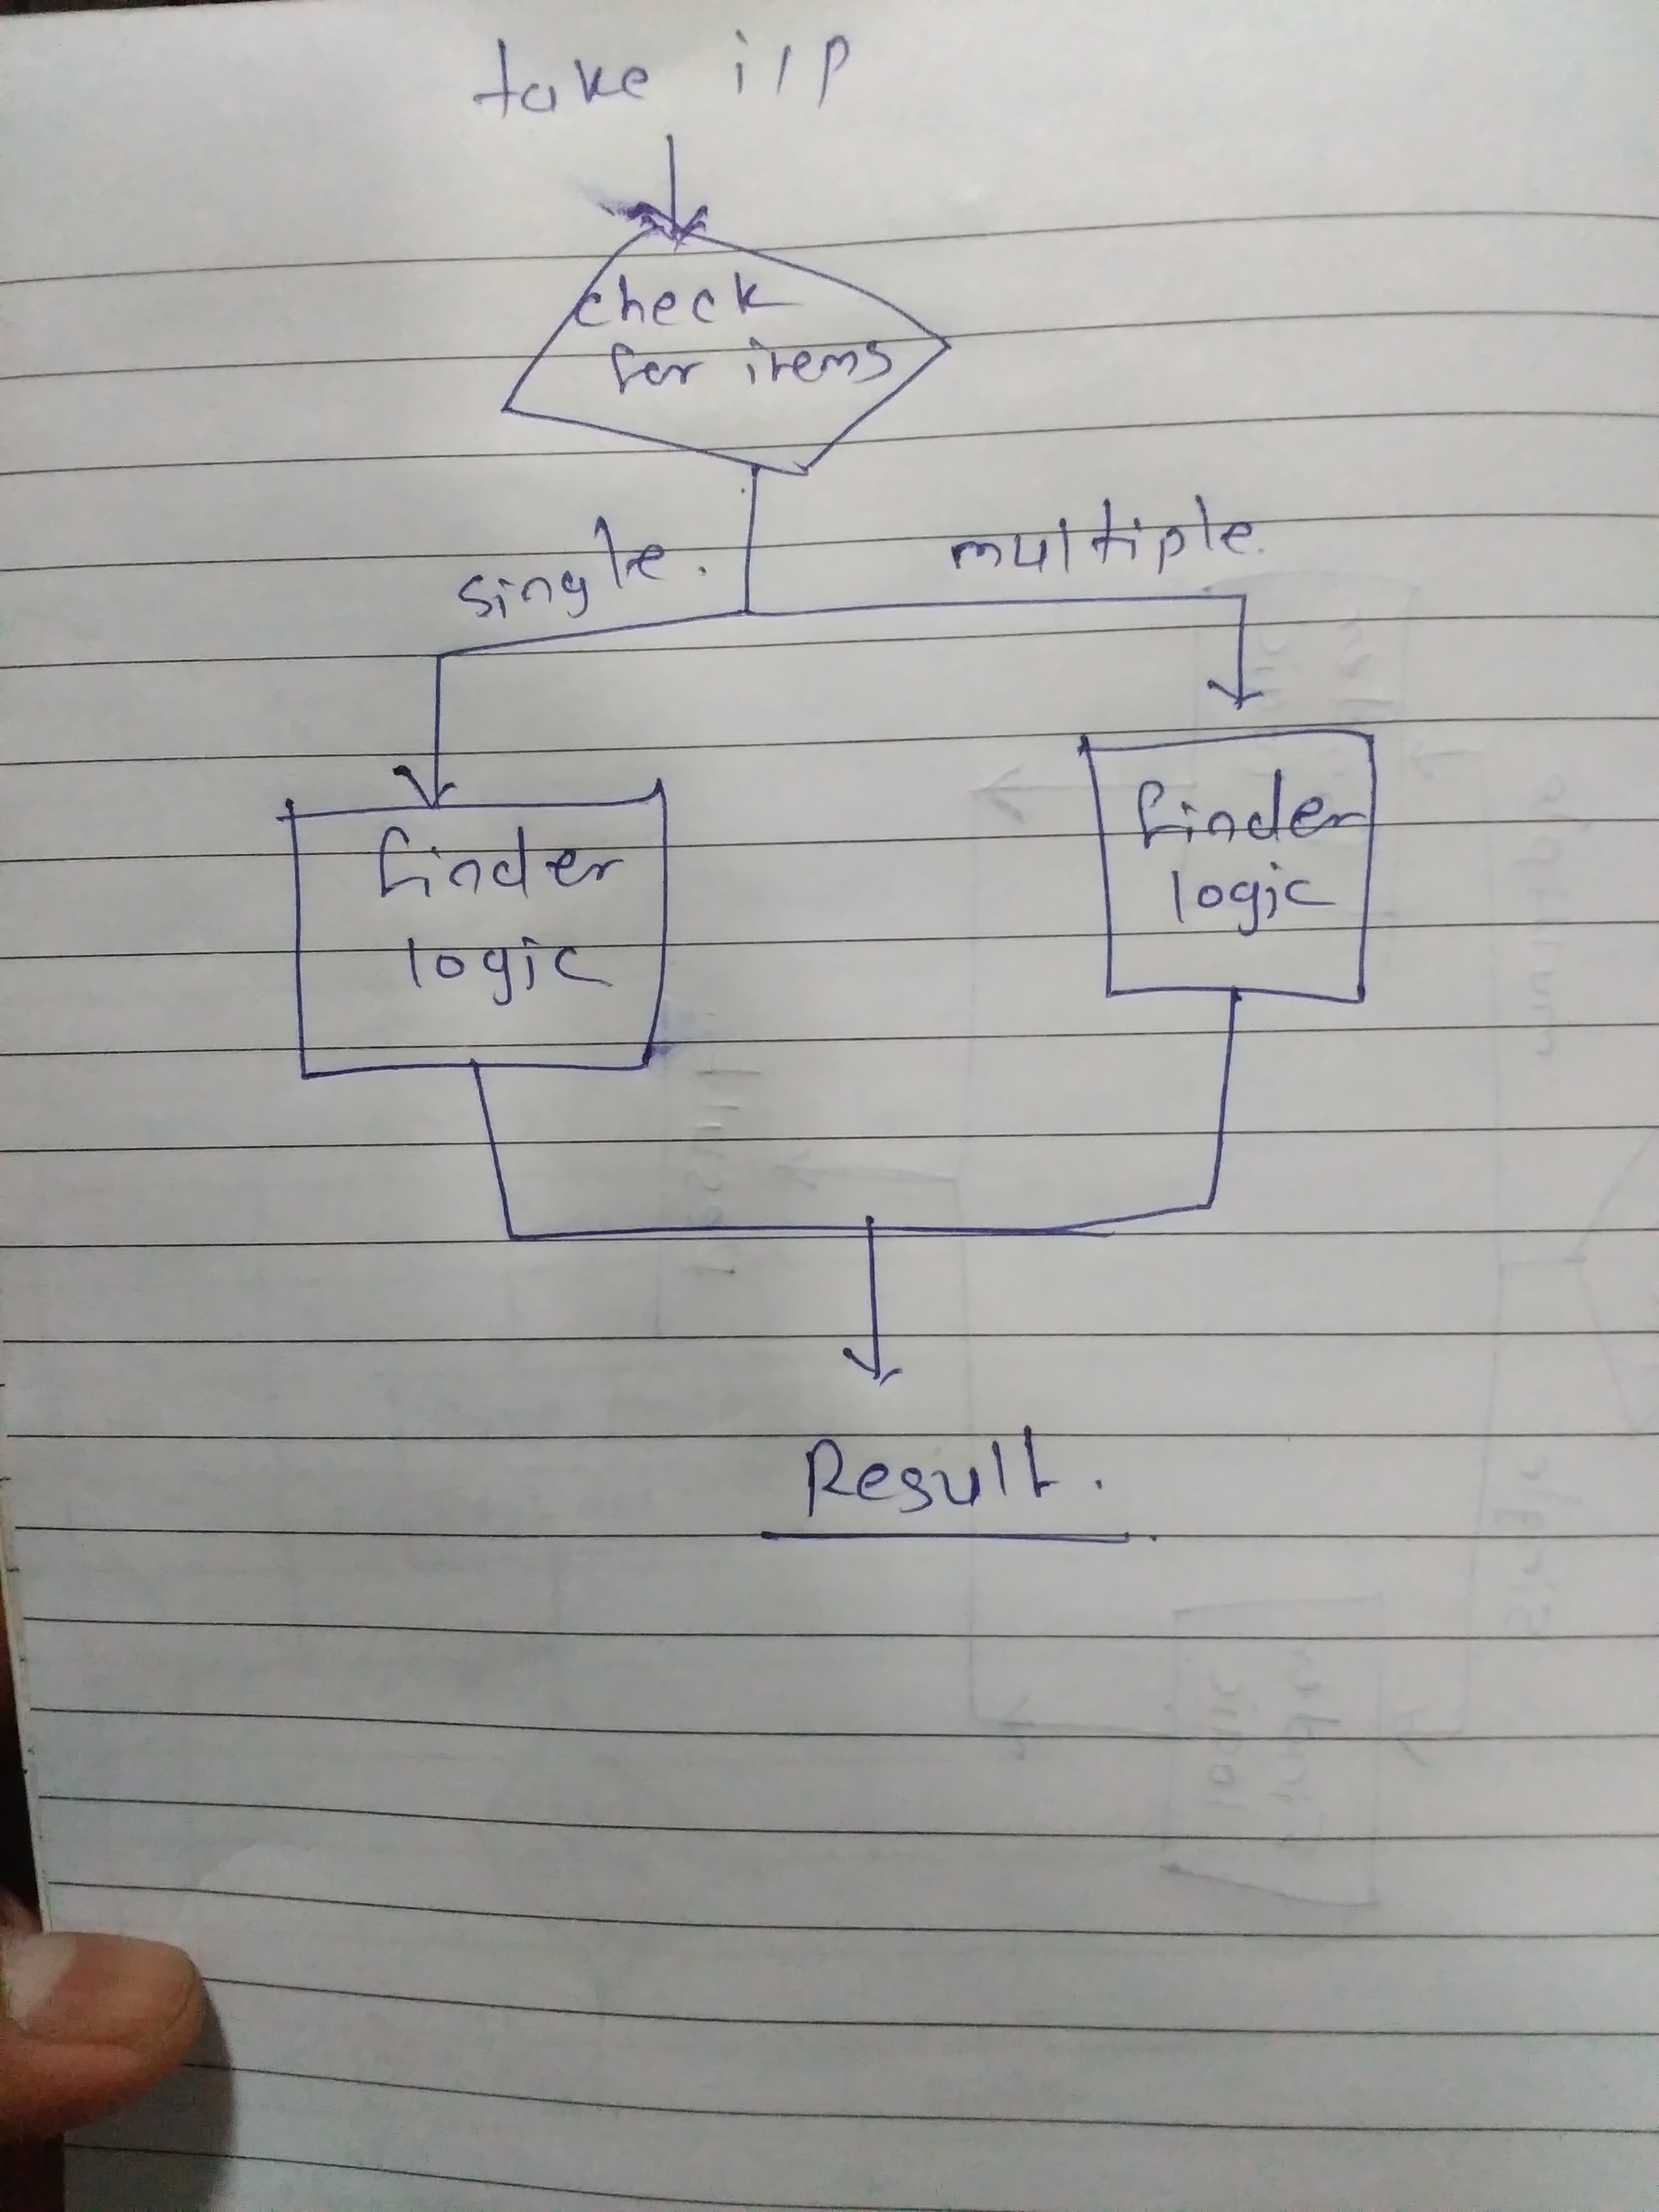 take i/p
check
for items
single.
multiple.
finder
logic
finder
logic
Result.